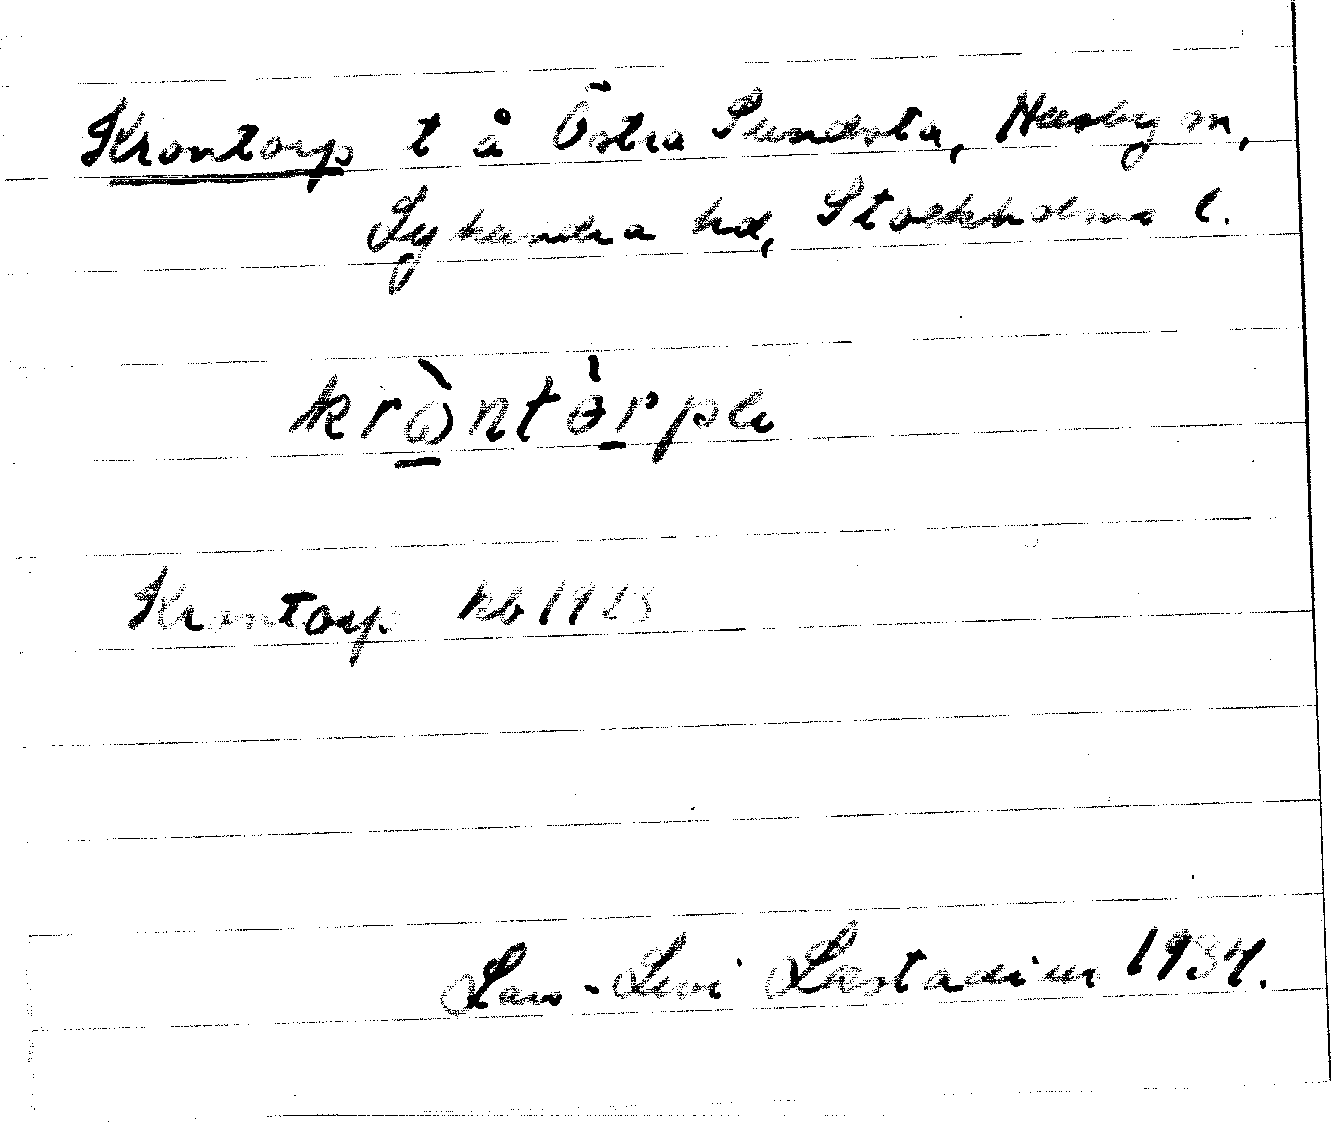 Krontorp t å Östra Sundsta, Husby sn,
Lyhundra hd, Stockholms l.
krò̱ntò̱rpeh
Krontorp kb 1913
Lars-Levi Læstadius 1934.